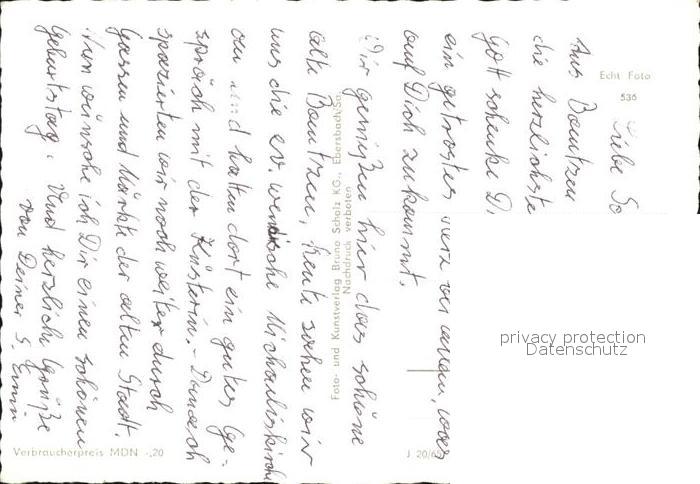 Liebe
Aus Bautzen
die herzlichste
Gott schenke D
ein getrostes Herz bei allem, was
auf Dich zukommt.
Wir genießen hier das schöne
alte Bautzen, heute sahen wir
uns die ev. wendische Michaeliskirche
an und hatten dort ein gutes Ge-
spräch mit der Küsterin. - Danach
spazierten wir noch weiter durch
Gassen und Märkte der alten Stadt.
Nun wünsche ich Dir einen schönen
Geburtstag. Und herzliche Grüße
von Deiner
Echt Foto
536
Foto- und Kunstverlag Bruno Scholz KG., Ebersbach/Sa.
Nachdruck verboten
privacy protection
Datenschutz
Verbraucherpreis MDN -,20
J 20/6